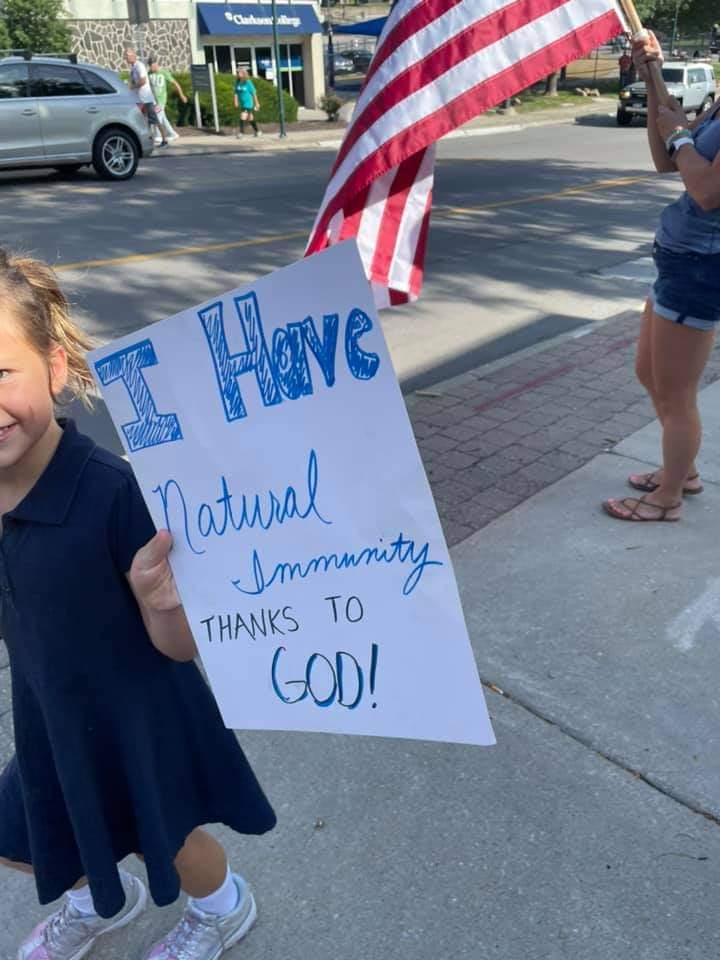 Clarkson College
I Have
Natural
Immunity
THANKS TO
GOD!